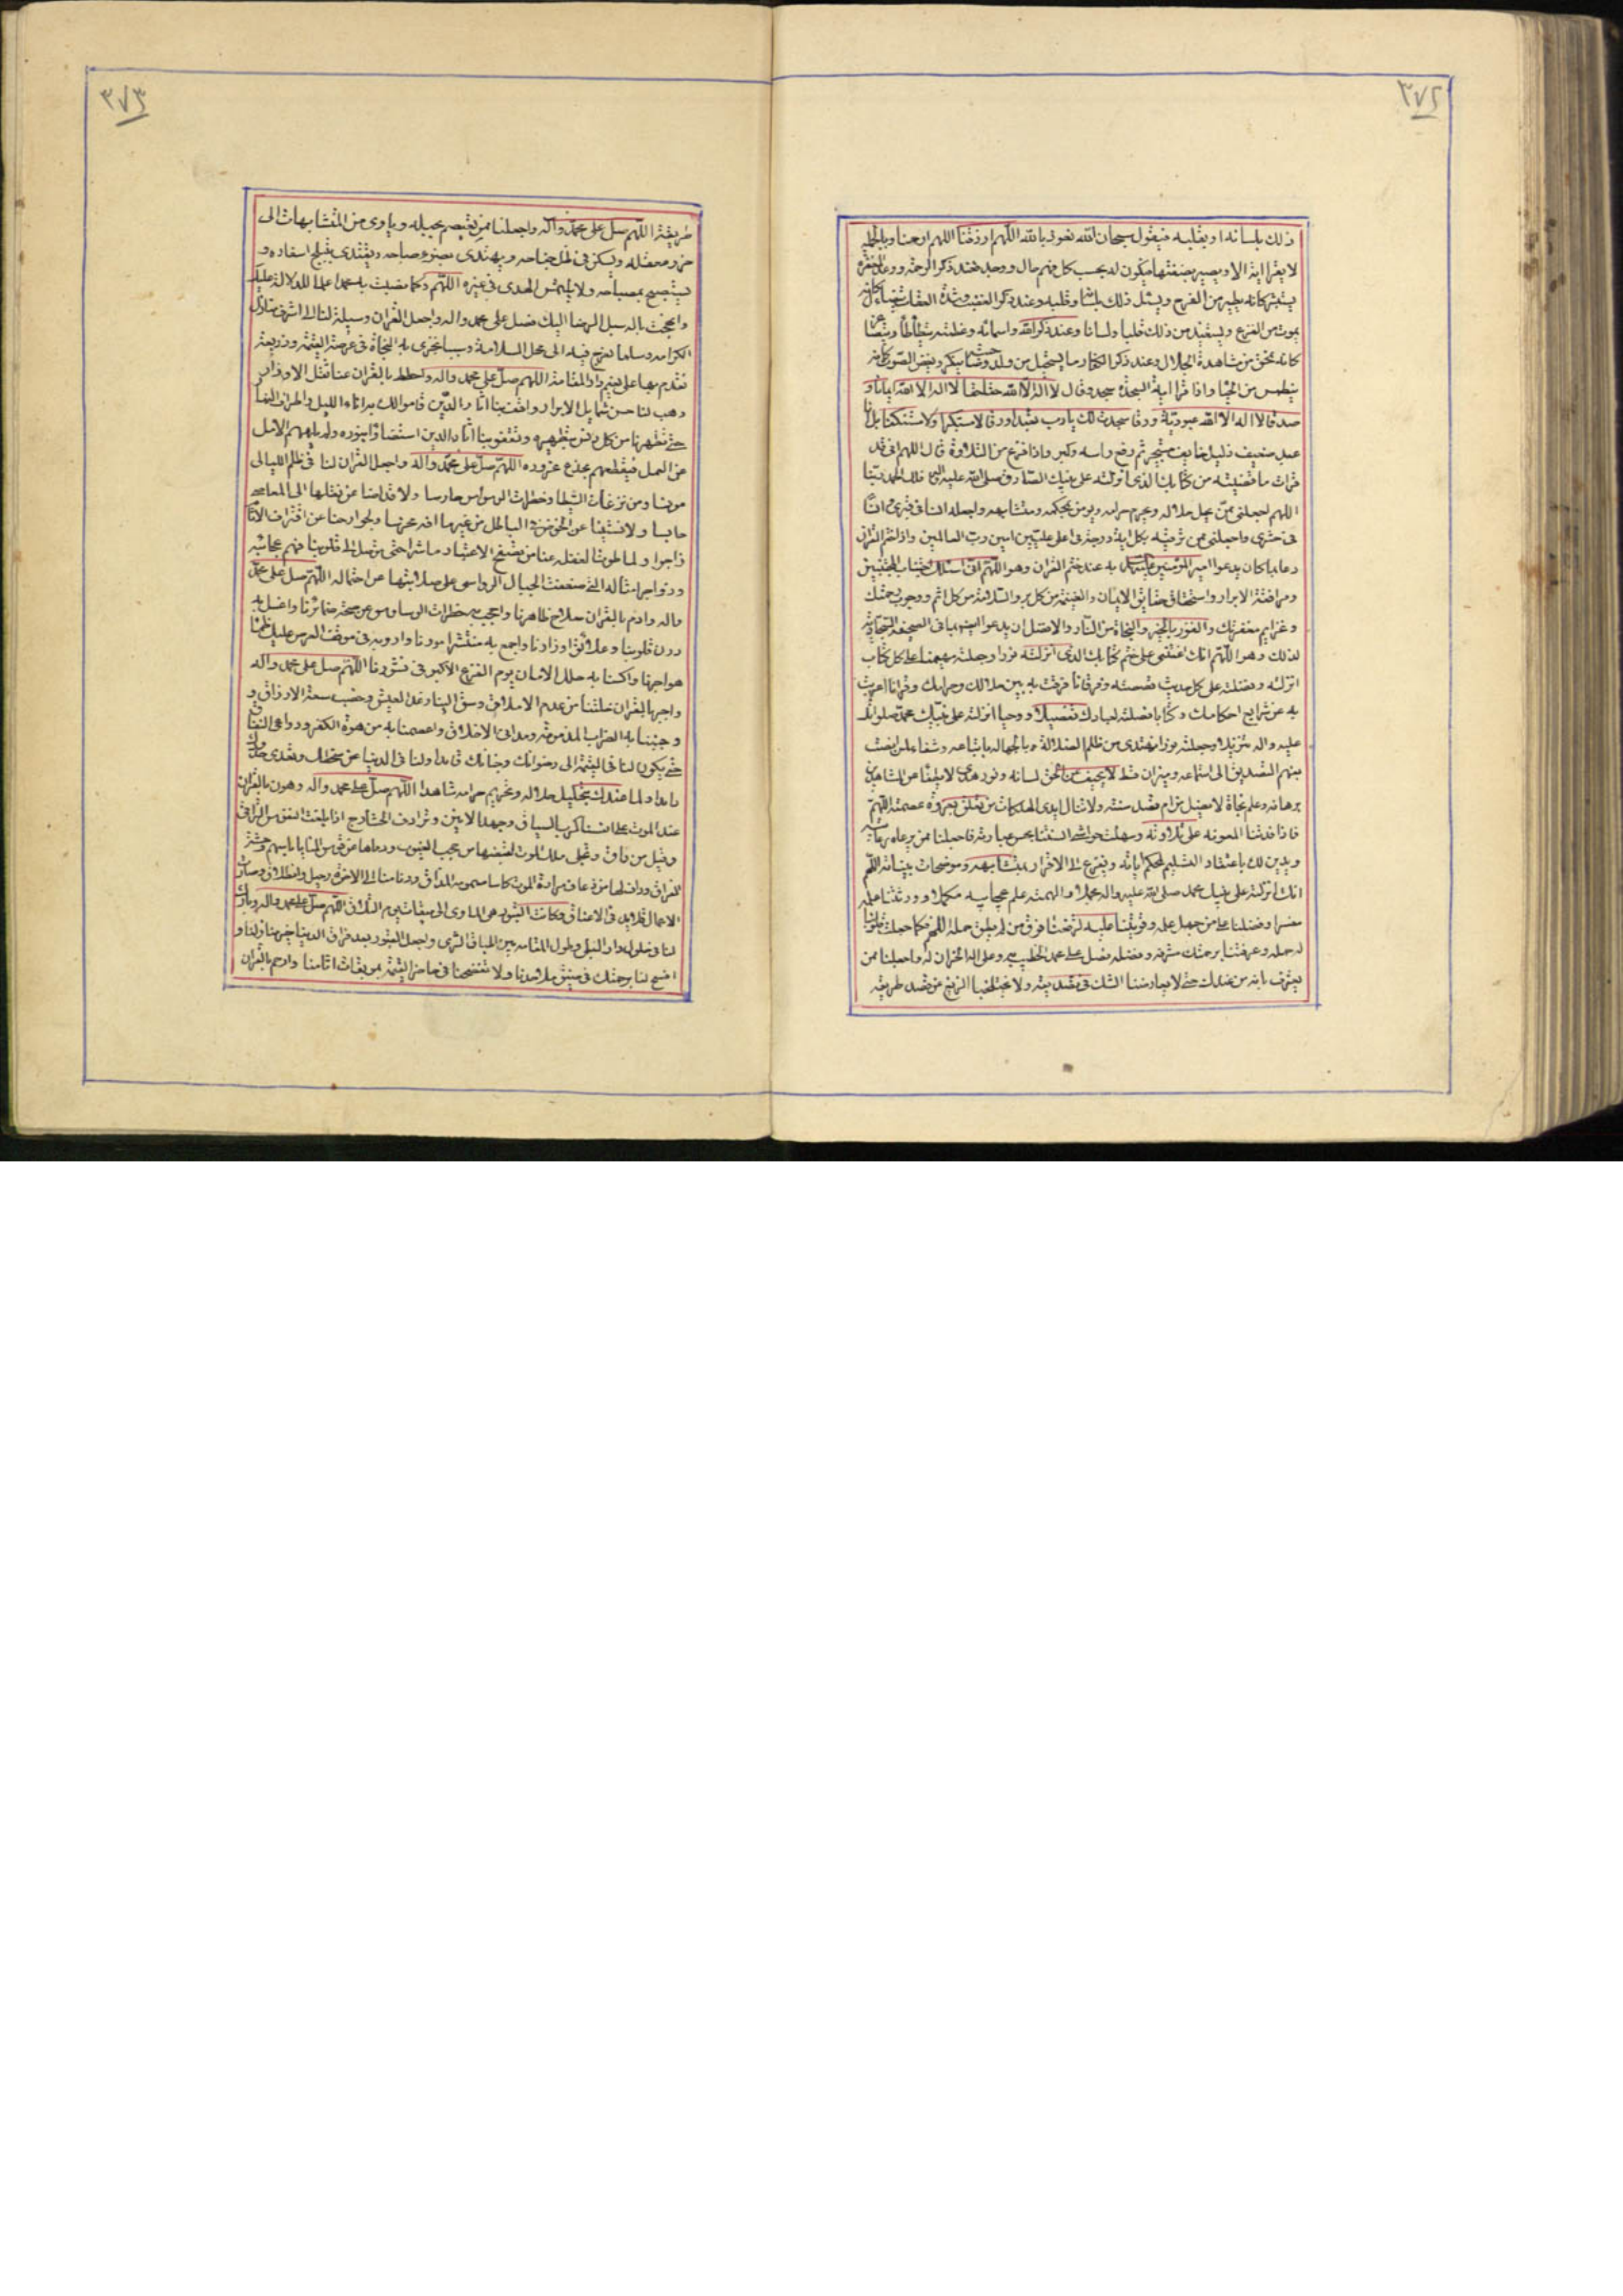 ٣٧٢
ذلك بلسانه او بقلبه فيقول سبحان الله نعوذ بالله اللهم ارزقنا اللهم ارحمنا وبالجملة
لا يقرا اية الا ويصير بصفتها فيكون له بحسب كل فهم حال ووجد فعند ذكر الرحمة ووعد المغفرة
يستبشر كانه يطير من الفرح ويسئل ذلك بلسانه وقلبه وعند ذكر الغضب وشدة العقاب يتضاءل كانه
يموت من الفزع ويستعيذ من ذلك قلبا ولسانا وعند ذكر الله واسمائه وعظمته يتطأطأ ويتصاغر
كانه يمحق من مشاهدة الجلال وعند ذكر الكفار ما يستحيل من ولد وصاحبة ينكسر ويغض الصوت كانه
ينطمس من الحيا واذا قرا اية السجدة سجد وقال لا اله الا الله حقا حقا لا اله الا الله ايمانا و
صدقا لا اله الا الله عبودية ورقا سجدت لك يا رب تعبدا ورقا لا مستكبرا ولا مستنكفا بل انا
عبد ضعيف ذليل خايف مستجير ثم رفع راسه وكبر واذا فرغ من التلاوة قال اللهم اني قد
قرات ما قضيته من كتابك الذي انزلته على نبيك الصادق صلى الله عليه واله فلك الحمد ربنا
اللهم اجعلني ممن يحل حلاله ويحرم حرامه ويومن بمحكمه ومتشابهه واجعله انسا في قبري وانسا
في حشري واجعلني ممن ترقيه بكل اية درجة في اعلى عليين امين رب العالمين واذا ختم القران
دعا بما كان يدعو امير المؤمنين به عند ختم القران وهو اللهم اني اسئلك اخبات المخبتين
ومرافقة الابرار واستحقاق حقايق الايمان والغنيمة من كل بر والسلامة من كل اثم ووجوب رحمتك
وعزايم مغفرتك والفوز بالجنة والنجاة من النار والافضل ان يدعو ايضا بما في الصحيفة السجادية
لذلك وهو اللهم انك اعنتني على ختم كتابك الذي انزلته نورا وجعلته مهيمنا على كل كتاب
انزلته وفضلته على كل حديث قصصته وفرقانا فرقت به بين حلالك وحرامك وقرانا اعربت
به عن شرايع احكامك وكتابا فصلته لعبادك تفصيلا ووحيا انزلته على نبيك محمد صلواتك
عليه واله تنزيلا وجعلته نورا نهتدي من ظلم الضلالة والجهالة باتباعه وشفاء لمن انصت
بفهم التصديق الى استماعه وميزان قسط لا يحيف عن الحق لسانه ونور هدى لا يطفا عن الشاهدين
برهانه وعلم نجاة لا يضل من ام قصد سنته ولا تنال ايدي الهلكات من تعلق بعروة عصمته اللهم
فاذا افدتنا المعونة على تلاوته وسهلت جواسي السنتنا بحسن عبارته فاجعلنا ممن يرعاه حق رعايته
ويدين لك باعتقاد التسليم لمحكم اياته ويفزع الى الاقرار بمتشابهه وموضحات بيناته اللهم
انك انزلته على نبيك محمد صلى الله عليه واله مجملا والهمته علم عجايبه مكملا وورثتنا علمه
مفسرا وفضلتنا على من جهل علمه وقويتنا عليه لترفعنا فوق من لم يطق حمله اللهم فكما جعلت قلوبنا
له حملة وعرفتنا برحمتك شرفه وفضله فصل على محمد الخطيب به وعلى اله الخزان له واجعلنا ممن
يعترف بانه من عندك حتى لا يعارضنا الشك في تصديقه ولا يختلجنا الزيغ عن قصد طريقه
٣٧٣
طريقه اللهم صل على محمد واله واجعلنا ممن يعتصم بحبله وياوي من المتشابهات الى
حرز معقله ويسكن في ظل جناحه ويهتدي بضوء صباحه ويقتدي بتبلج اسفاره و
يستصبح بمصباحه ولا يلتمس الهدى في غيره اللهم وكما نصبت به محمدا علما للدلالة عليك
وانهجت باله سبل الرضا اليك فصل على محمد واله واجعل القران وسيلة لنا الى اشرف منازل
الكرامة وسلما نعرج فيه الى محل السلامة وسببا نجزى به النجاة في عرصة القيمة وذريعة
نقدم بها على نعيم دار المقامة اللهم صل على محمد واله واحطط بالقران عنا ثقل الاوزار
وهب لنا حسن شمايل الابرار واقف بنا اثار الذين قاموا لك به اناء الليل واطراف النهار
حتى تطهرنا من كل دنس بتطهيره وتقفو بنا اثار الذين استضاؤا بنوره ولم يلههم الامل
عن العمل فيقطعهم بخدع غروره اللهم صل على محمد واله واجعل القران لنا في ظلم الليالي
مونسا ومن نزغات الشيطان وخطرات الوساوس حارسا ولاقدامنا عن نقلها الى المعاصي
حابسا ولالسنتنا عن الخوض في الباطل من غير ما افة مخرسا ولجوارحنا عن اقتراف الاثام
زاجرا ولما طوت الغفلة عنا من تصفح الاعتبار ناشرا حتى توصل الى قلوبنا فهم عجائبه
وزواجر امثاله التي ضعفت الجبال الرواسي على صلابتها عن احتماله اللهم صل على محمد
واله وادم بالقران صلاح ظاهرنا واحجب به خطرات الوساوس عن صحة ضمائرنا واغسل به
درن قلوبنا وعلائق اوزارنا واجمع به منتشر امورنا وارو به في موقف العرض عليك ظمأ
هواجرنا واكسنا به حلل الامان يوم الفزع الاكبر في نشورنا اللهم صل على محمد واله
واجبر بالقران خلتنا من عدم الاملاق وسق الينا رغد العيش وخصب سعة الارزاق و
وجنبنا به الضرايب المذمومة ومداني الاخلاق واعصمنا به من هوة الكفر ودواعي النفاق
حتى يكون لنا في القيمة الى رضوانك وجنانك قايدا ولنا في الدنيا عن سخطك وتعدي حدودك
ذايدا ولما عندك بتحليل حلاله وتحريم حرامه شاهدا اللهم صل على محمد واله وهون بالقران
عند الموت على انفسنا كرب السياق وجهد الانين وترادف الحشارج اذا بلغت النفوس التراقي
وقيل من راق وتجلى ملك الموت لقبضها من حجب الغيوب ورماها عن قوس المنايا باسهم وحشة
الفراق وداف لها من ذعاف مرارة الموت كاسا مسمومة المذاق ودنا منا الى الاخرة رحيل وانطلاق وصارت
الاعمال قلايد في الاعناق وكانت القبور هي الماوى الى ميقات يوم التلاق اللهم صل على محمد واله وبارك
لنا في حلول دار البلى وطول المقامة بين اطباق الثرى واجعل القبور بعد فراق الدنيا خير منازلنا و
افسح لنا برحمتك في ضيق ملاحدنا ولا تفضحنا في حاضر القيمة بموبقات اثامنا وارحم بالقران